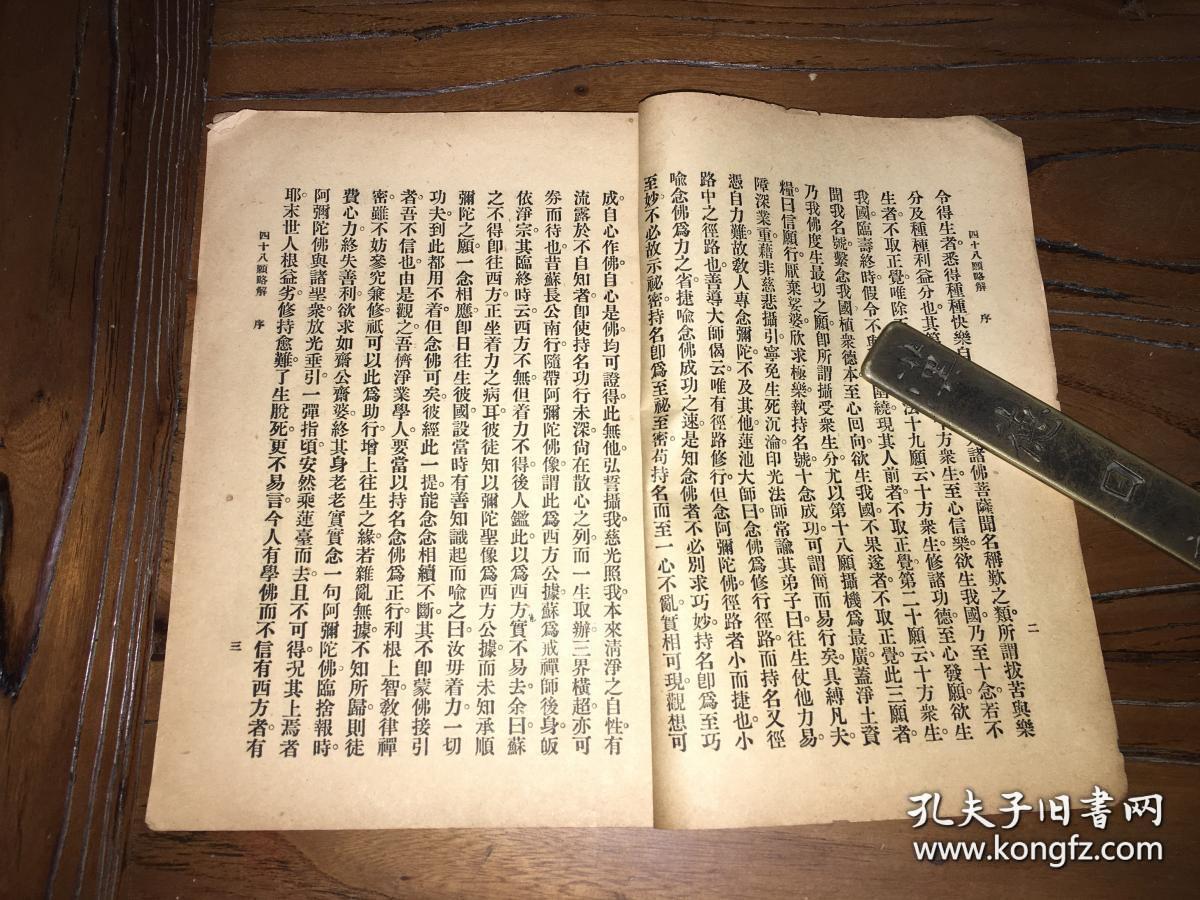 四十八願略解 序 二
令得生者。悉得種種快樂自
諸佛菩薩聞名稱歎之類。所謂拔苦與樂
分及種種利益分也。其第
十方衆生。至心信樂。欲生我國。乃至十念。若不
生者。不取正覺。唯除
法。十九願云。十方衆生。修諸功德。至心發願。欲生
我國。臨壽終時。假令不與
圍繞。現其人前者。不取正覺。第二十願云。十方衆生。
聞我名號。繫念我國。植衆德本。至心回向。欲生我國。不果遂者。不取正覺。此三願者。
乃我佛度生最切之願。卽所謂攝受衆生分。尤以第十八願攝機爲最廣。蓋淨土資
糧。曰信願行。厭棄娑婆。欣求極樂。執持名號。十念成功。可謂簡而易行矣。具縛凡夫。
障深業重。藉非慈悲攝引。寧免生死沉淪。印光法師常諭其弟子曰。往生仗他力易。
憑自力難。故敎人專念彌陀。不及其他。蓮池大師曰。念佛爲修行徑路。而持名又徑
路中之徑路也。善導大師偈云。唯有徑路修行。但念阿彌陀佛。徑路者。小而捷也。小
喩念佛爲力之省。捷喩念佛成功之速。是知念佛者。不必別求巧妙。持名卽爲至巧
至妙。不必故示祕密。持名卽爲至祕至密。苟持名而至一心不亂。實相可現。觀想可
成。自心作佛。自心是佛。均可證得。此無他。弘誓攝我。慈光照我。本來淸淨之自性。有
流露於不自知者。卽使持名功行未深。尙在散心之列。而一生取辦。三界橫超。亦可
劵而待也。昔蘇長公南行。隨帶阿彌陀佛像。謂此爲西方公據。蘇爲戒禪師後身。皈
依淨宗。其臨終時云。西方不無。但着力不得。後人鑑此。以爲西方實不易去。余曰。蘇
之不得卽往西方。正坐着力之病耳。彼徒知以彌陀聖像爲西方公據。而未知承順
彌陀之願。一念相應。卽日往生彼國。設當時有善知識起而喩之曰。汝毋着力。一切
功夫到此都用不着。但念佛可矣。彼經此一提。能念念相續不斷。其不卽蒙佛接引
者。吾不信也。由是觀之。吾儕淨業學人。要當以持名念佛爲正行。利根上智。敎律禪
密。雖不妨參究兼修。祇可以此爲助行。增上往生之緣。若雜亂無據。不知所歸。則徒
費心力。終失善利。欲求如齋公齋婆。終其身老老實實念一句阿彌陀佛。臨捨報時。
阿彌陀佛與諸聖衆放光垂引。一彈指頃。安然乘蓮臺而去。且不可得。況其上焉者
耶。末世人根益劣。修持愈難。了生脫死。更不易言。今人有學佛而不信有西方者。有
四十八願略解 序 三
孔夫子旧书网
www.kongfz.com